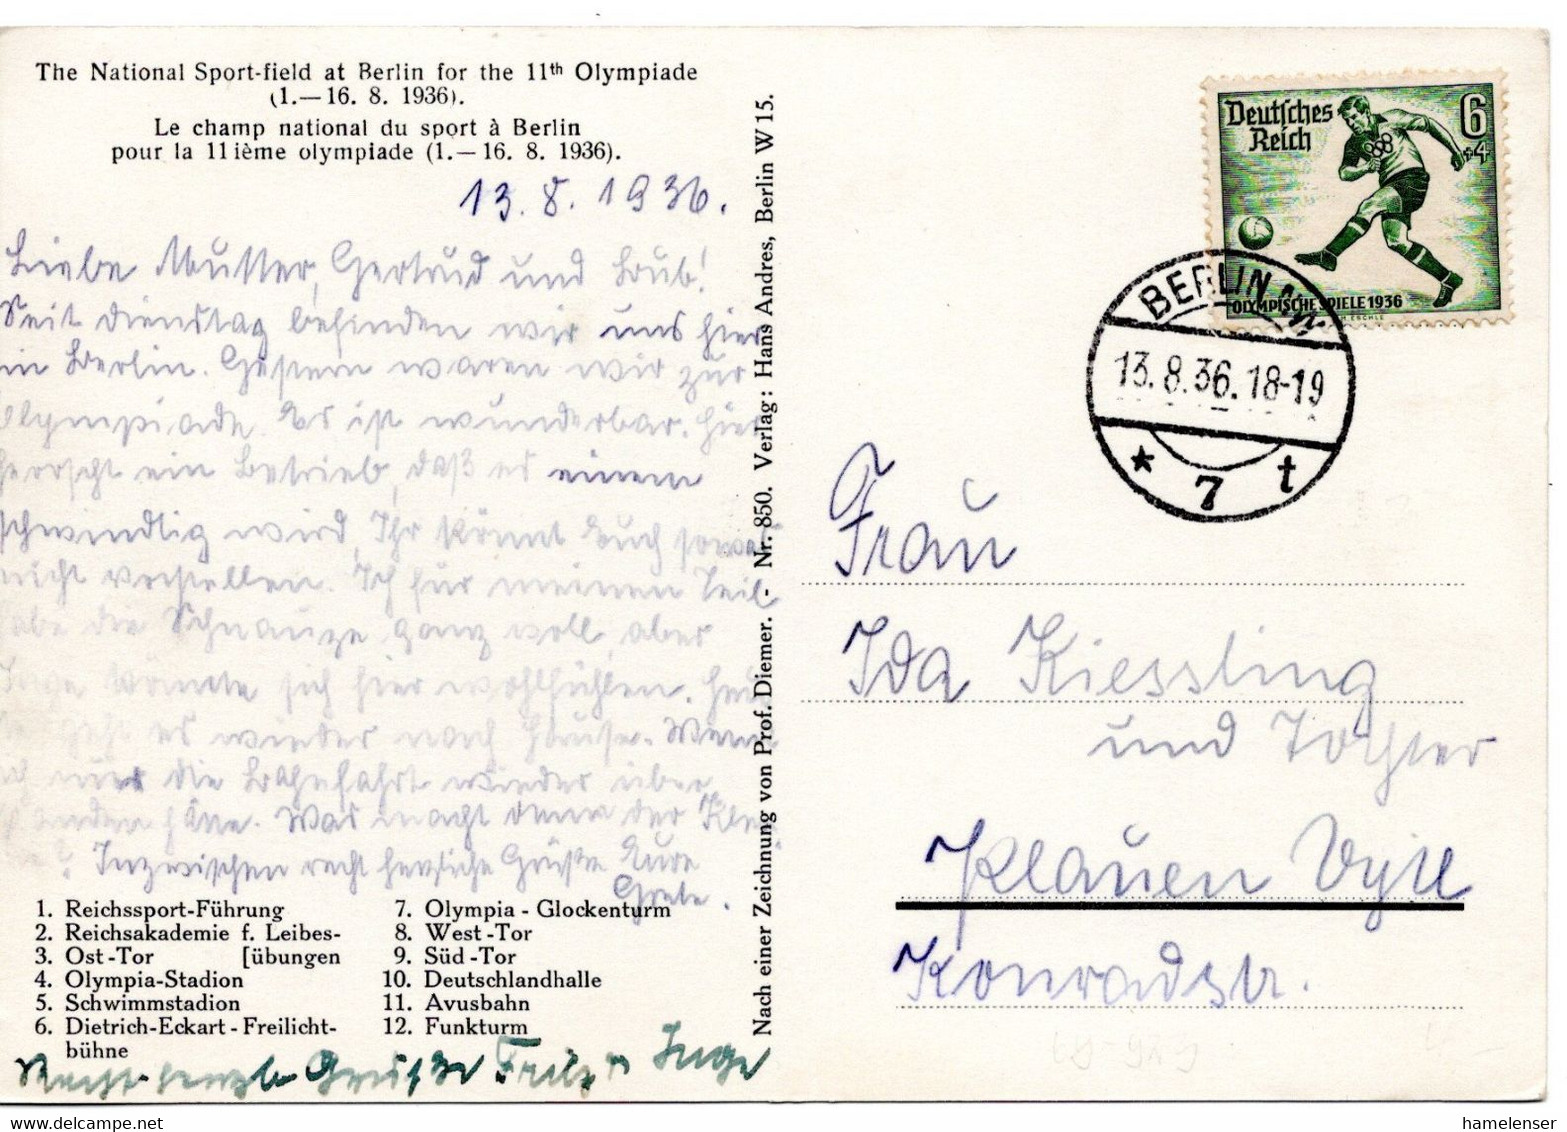 The National Sport-field at Berlin for the 11th Olympiade
(1.—16. 8. 1936).
Le champ national du sport à Berlin
pour la 11ième olympiade (1.—16. 8. 1936).
13. 8. 1936.
Liebe Mutter, Gertrud und Bub!
Seit Dienstag befinden wir uns hier
in Berlin. Gestern waren wir zur
Olympiade. Es ist wunderbar. Hier
herrscht ein Betrieb, daß es einem
schwindlig wird, Ihr könnt Euch sowas
nicht vorstellen. Ich für meinen Teil
habe die Schnauze ganz voll, aber
Inge könnte sich hier wohlfühlen. Heu
geht es wieder nach Hause. Wenn
ich nur die Bahnfahrt wieder über
standen hätte. Was macht denn der Klei
ne? Inzwischen recht herzliche Grüße Eure
Grete.
1. Reichssport-Führung
2. Reichsakademie f. Leibes-
3. Ost-Tor [übungen
4. Olympia-Stadion
5. Schwimmstadion
6. Dietrich-Eckart-Freilicht-
bühne
7. Olympia - Glockenturm
8. West-Tor
9. Süd-Tor
10. Deutschlandhalle
11. Avusbahn
12. Funkturm
Recht herzl. Grüße Fritz u Inge
Nach einer Zeichnung von Prof. Diemer. - Nr. 850. Verlag: Hans Andres, Berlin W 15.
Deutsches
Reich
6
+4
OLYMPISCHE SPIELE 1936
M. ESCHLE
BERLIN
13.8.36.18-19
* 7 t
Frau
Ida Kiessling
und Tochter
Plauen Vgtl
Konradstr.
hamelenser